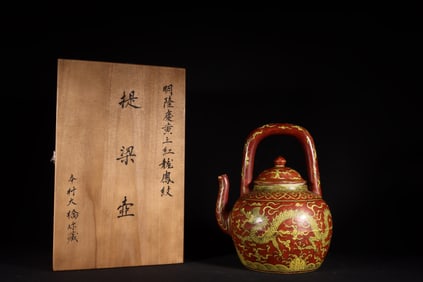 明隆慶黄上紅龍鳳紋
提梁壺
本村大橋珍藏